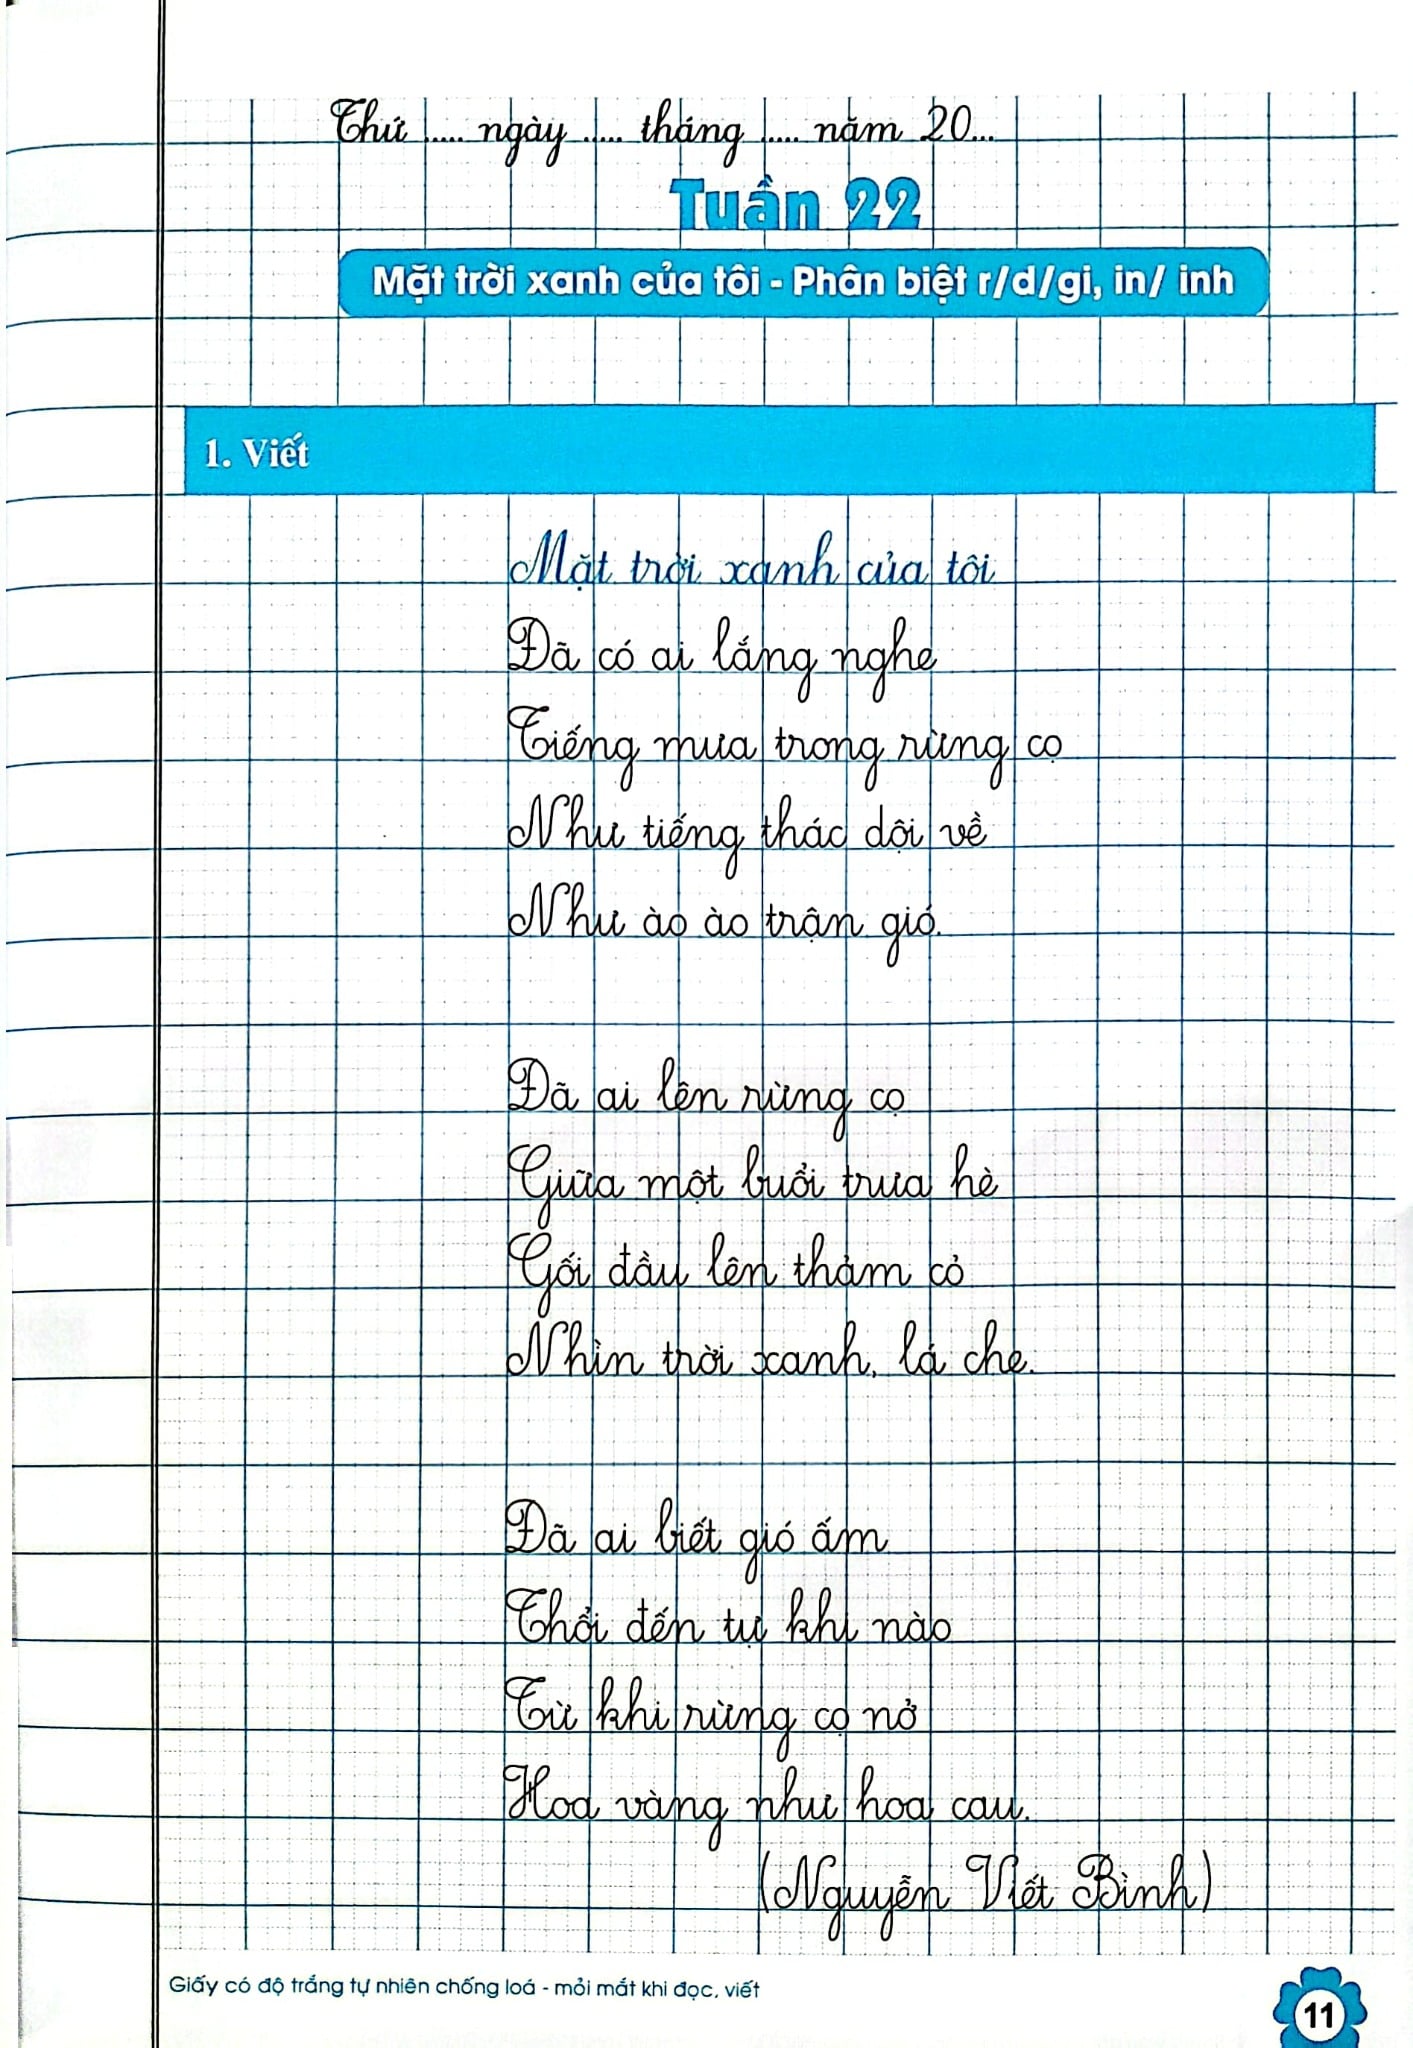 Thứ ..... ngày ..... tháng ..... năm 20...
Tuần 22
Mặt trời xanh của tôi - Phân biệt r/d/gi, in/ inh
1. Viết
Mặt trời xanh của tôi
Đã có ai lắng nghe
Tiếng mưa trong rừng cọ
Như tiếng thác dội về
Như ào ào trận gió.
Đã ai lên rừng cọ
Giữa một buổi trưa hè
Gối đầu lên thảm cỏ
Nhìn trời xanh, lá che.
Đã ai biết gió ấm
Thổi đến tự khi nào
Từ khi rừng cọ nở
Hoa vàng như hoa cau.
(Nguyễn Viết Bình)
Giấy có độ trắng tự nhiên chống loá - mỏi mắt khi đọc, viết
11